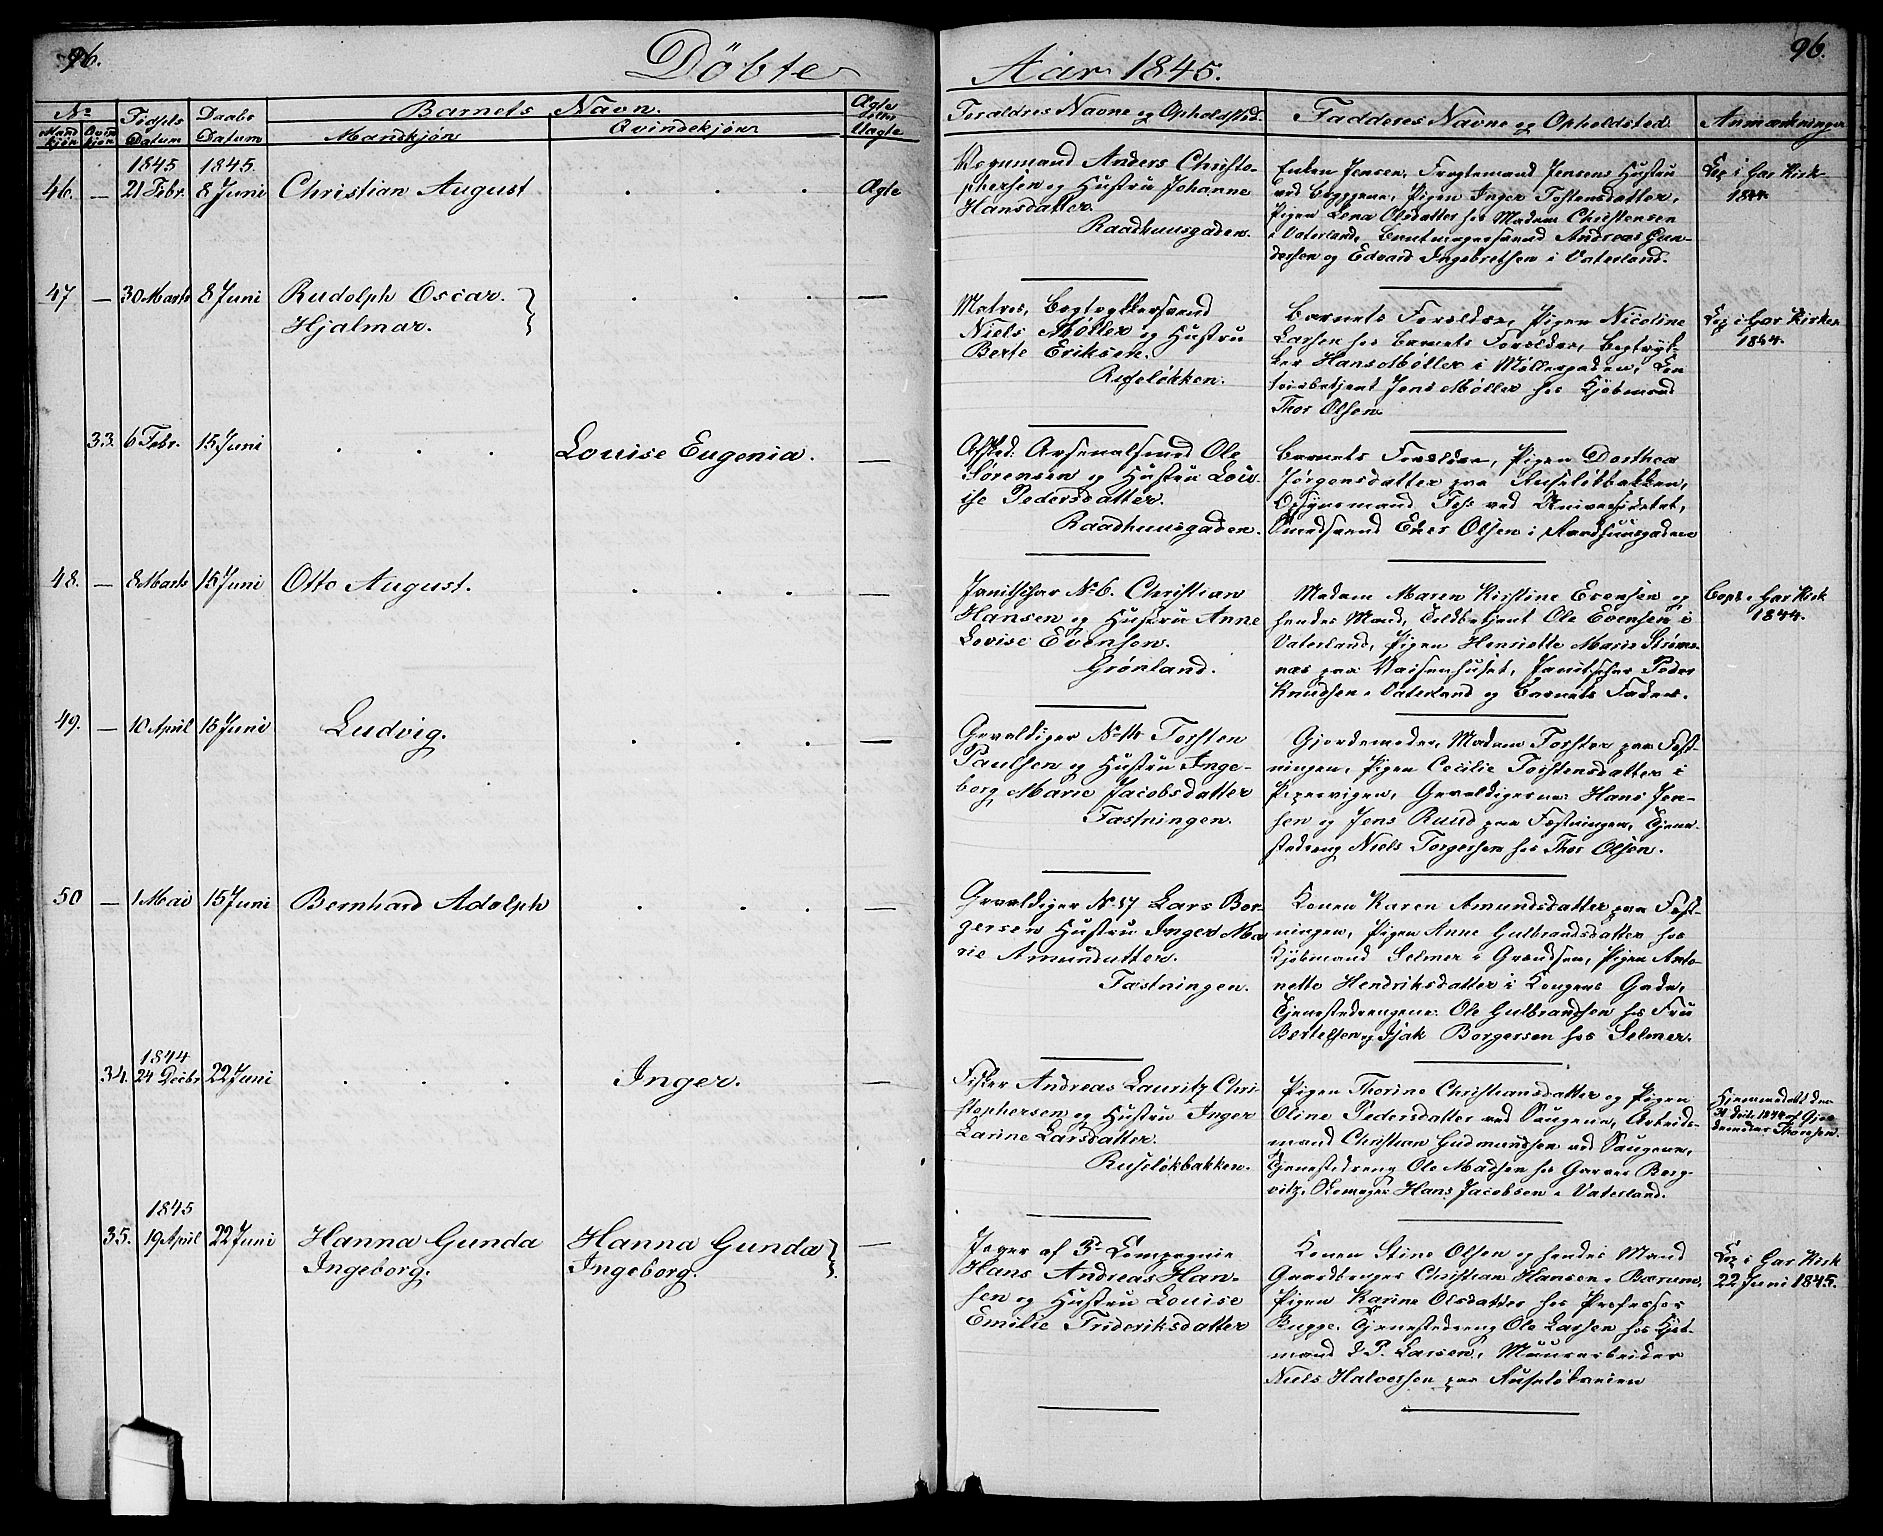 96.
Döbte
Aar 1845.
96.
No
Mand kjön
Qvin kjön
Födsels Datum
Daabs Datum
Barnets Navn.
Mandkjön
Qvindekjön
Ægte eller Uægte
Forældres Navne og Opholdsted.
Faddernes Navne og Opholdsted.
Anmærkninger
1845 1845.
46. — 21 Febr. 8 Juni Christian August . . . Ægte
Vognmand Anders Christo-
phersen og Hustru Johanne
Hansdatter.
Raadhuusgaden.
Enken Jensen, Fragtemand Jensens Hustru
ved Bryggene, Pigen Inger Tostensdatter,
Pigen Lena Olsdatter hos Madam Christensen
i Vaterland, Andreas Gun-
dersen og Edvard Ingebretsen i Vaterland.
i Gar Kirk
1844.
47 — 30 Marts 8 Juni Rudolph Oscar.
Hjalmar. . . . —
Matros, Bogtrykkersvend
Niels Møller og Hustru
Berte Eriksen.
Ruseløkken.
Barnets Forældre, Pigen Nicoline
Larsen hos Barnets Forældre, Bogtryk-
ker Hans Møller i Møllergaden, Con-
toirbetjent Jens Møller hos Kjøbmand
Thor Olsen.
i Gar Kirken
1844.
33. 6 Febr. 15 Juni . . . Louise Eugenia. —
Afsked: Arsenalsmed Ole
Sørensen og Hustru Loui-
se Pedersdatter.
Raadhuusgaden.
Barnets Forældre, Pigen Dorthea
Jørgensdatter paa Ruseløkbakken,
Opsynsmand Foss ved Universitetet,
Olsen i Raadhuusgaden
48. — 8 Marts 15 Juni Otto August. . . . —
Janitschar No 6. Christian
Hansen og Hustru Anne
Lovise Evensen.
Grønland.
Madam Maren Kirstine Evensen og
hendes Mand, Toldbetjent Ole Evensen i
Vaterland, Pigen Henriette Marie Strøms-
næs paa Vaisenhuset, Janitschar Peder
Knudsen i Vaterland og Barnets Fader.
Cop. i Gar Kirk
1844.
49. — 10 April 15 Juni Ludvig. . . . —
Gevaldiger No 16 Torsten
Paulsen og Hustru Inge-
borg Marie Jacobsdatter
Fæstningen.
Gjordemoder, Madam Torster paa Fæst-
ningen, Pigen Cecilie Torstensdatter i
Pipervigen, Gevaldigerne Hans Jen-
sen og Jens Ruud paa Fæstningen, Tjene-
stedreng Niels Torgersen hos Thor Olsen.
50 — 1 Mai 15 Juni Bernhard Adolph . . . —
Gevaldiger No 17 Lars Bor-
gersen Hustru Inger Ma-
rie Amundatter.
Fæstningen.
Konen Karen Amundsdatter paa Fæst-
ningen, Pigen Anne Gulbrandsdatter hos
Kjøbmand Selmer i Grændsen, Pigen Anto-
nette Hendriksdatter i Kongens Gade,
Tjenestedrengene Ole Gulbrandsen hos Fru
Bertelsen og Isak Borgersen hos Selmer.
1844
34. 24 Decbr 22 Juni . . . Inger. —
Fisker Andreas Lauritz Chri-
stophersen og Hustru Inger
Larine Larsdatter.
Ruseløkbakken.
Pigen Thorine Christiansdatter og Pigen
Oline Pedersdatter ved Saugene, Arbeids-
mand Christian Gudmundsen ved Saugene,
Tjenestedreng Ole Madsen hos Garver Berg-
vitz, Skomager Hans Jacobsen i Vaterland.
Hjemmedøbt den
31 Decbr. 1844 af Gjor-
demoder Thoresen.
1845
35. 19 April 22 Juni Hanna Gunda
Ingeborg.
Hanna Gunda
Ingeborg. —
Jæger af 3die Compagnie
Hans Andreas Han-
sen og Hustru Louise
Emilie Frideriksdatter
Konen Stine Olsen og hendes Mand
Gaardbruger Christian Hansen i Bærum,
Pigen Karine Olsdatter hos Professor
Bugge, Tjenestedreng Ole Larsen hos Kjøb-
mand P. Larsen, Muurarbeider
Niels Halversen paa Ruseløkveien
i Gar Kirk
22 Juni 1845.